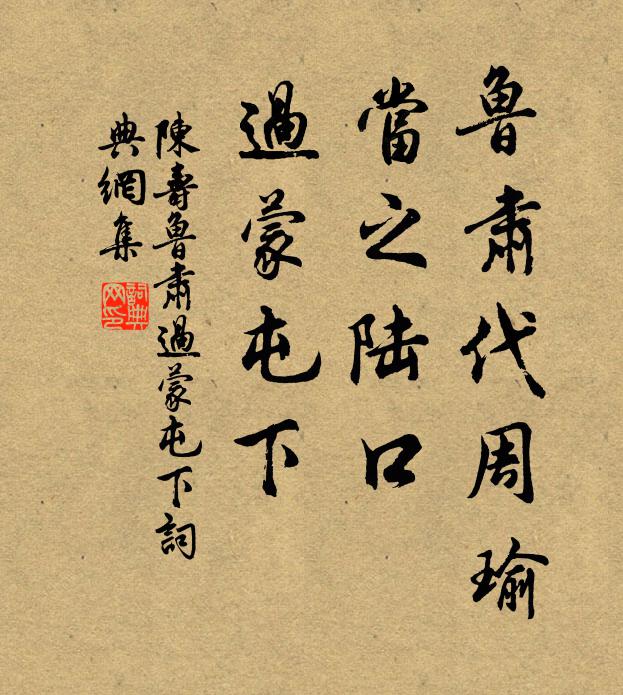 魯肅代周瑜
當之陆口
過蒙屯下
陳壽魯肅過蒙屯下詞
典網集
詞典
网印